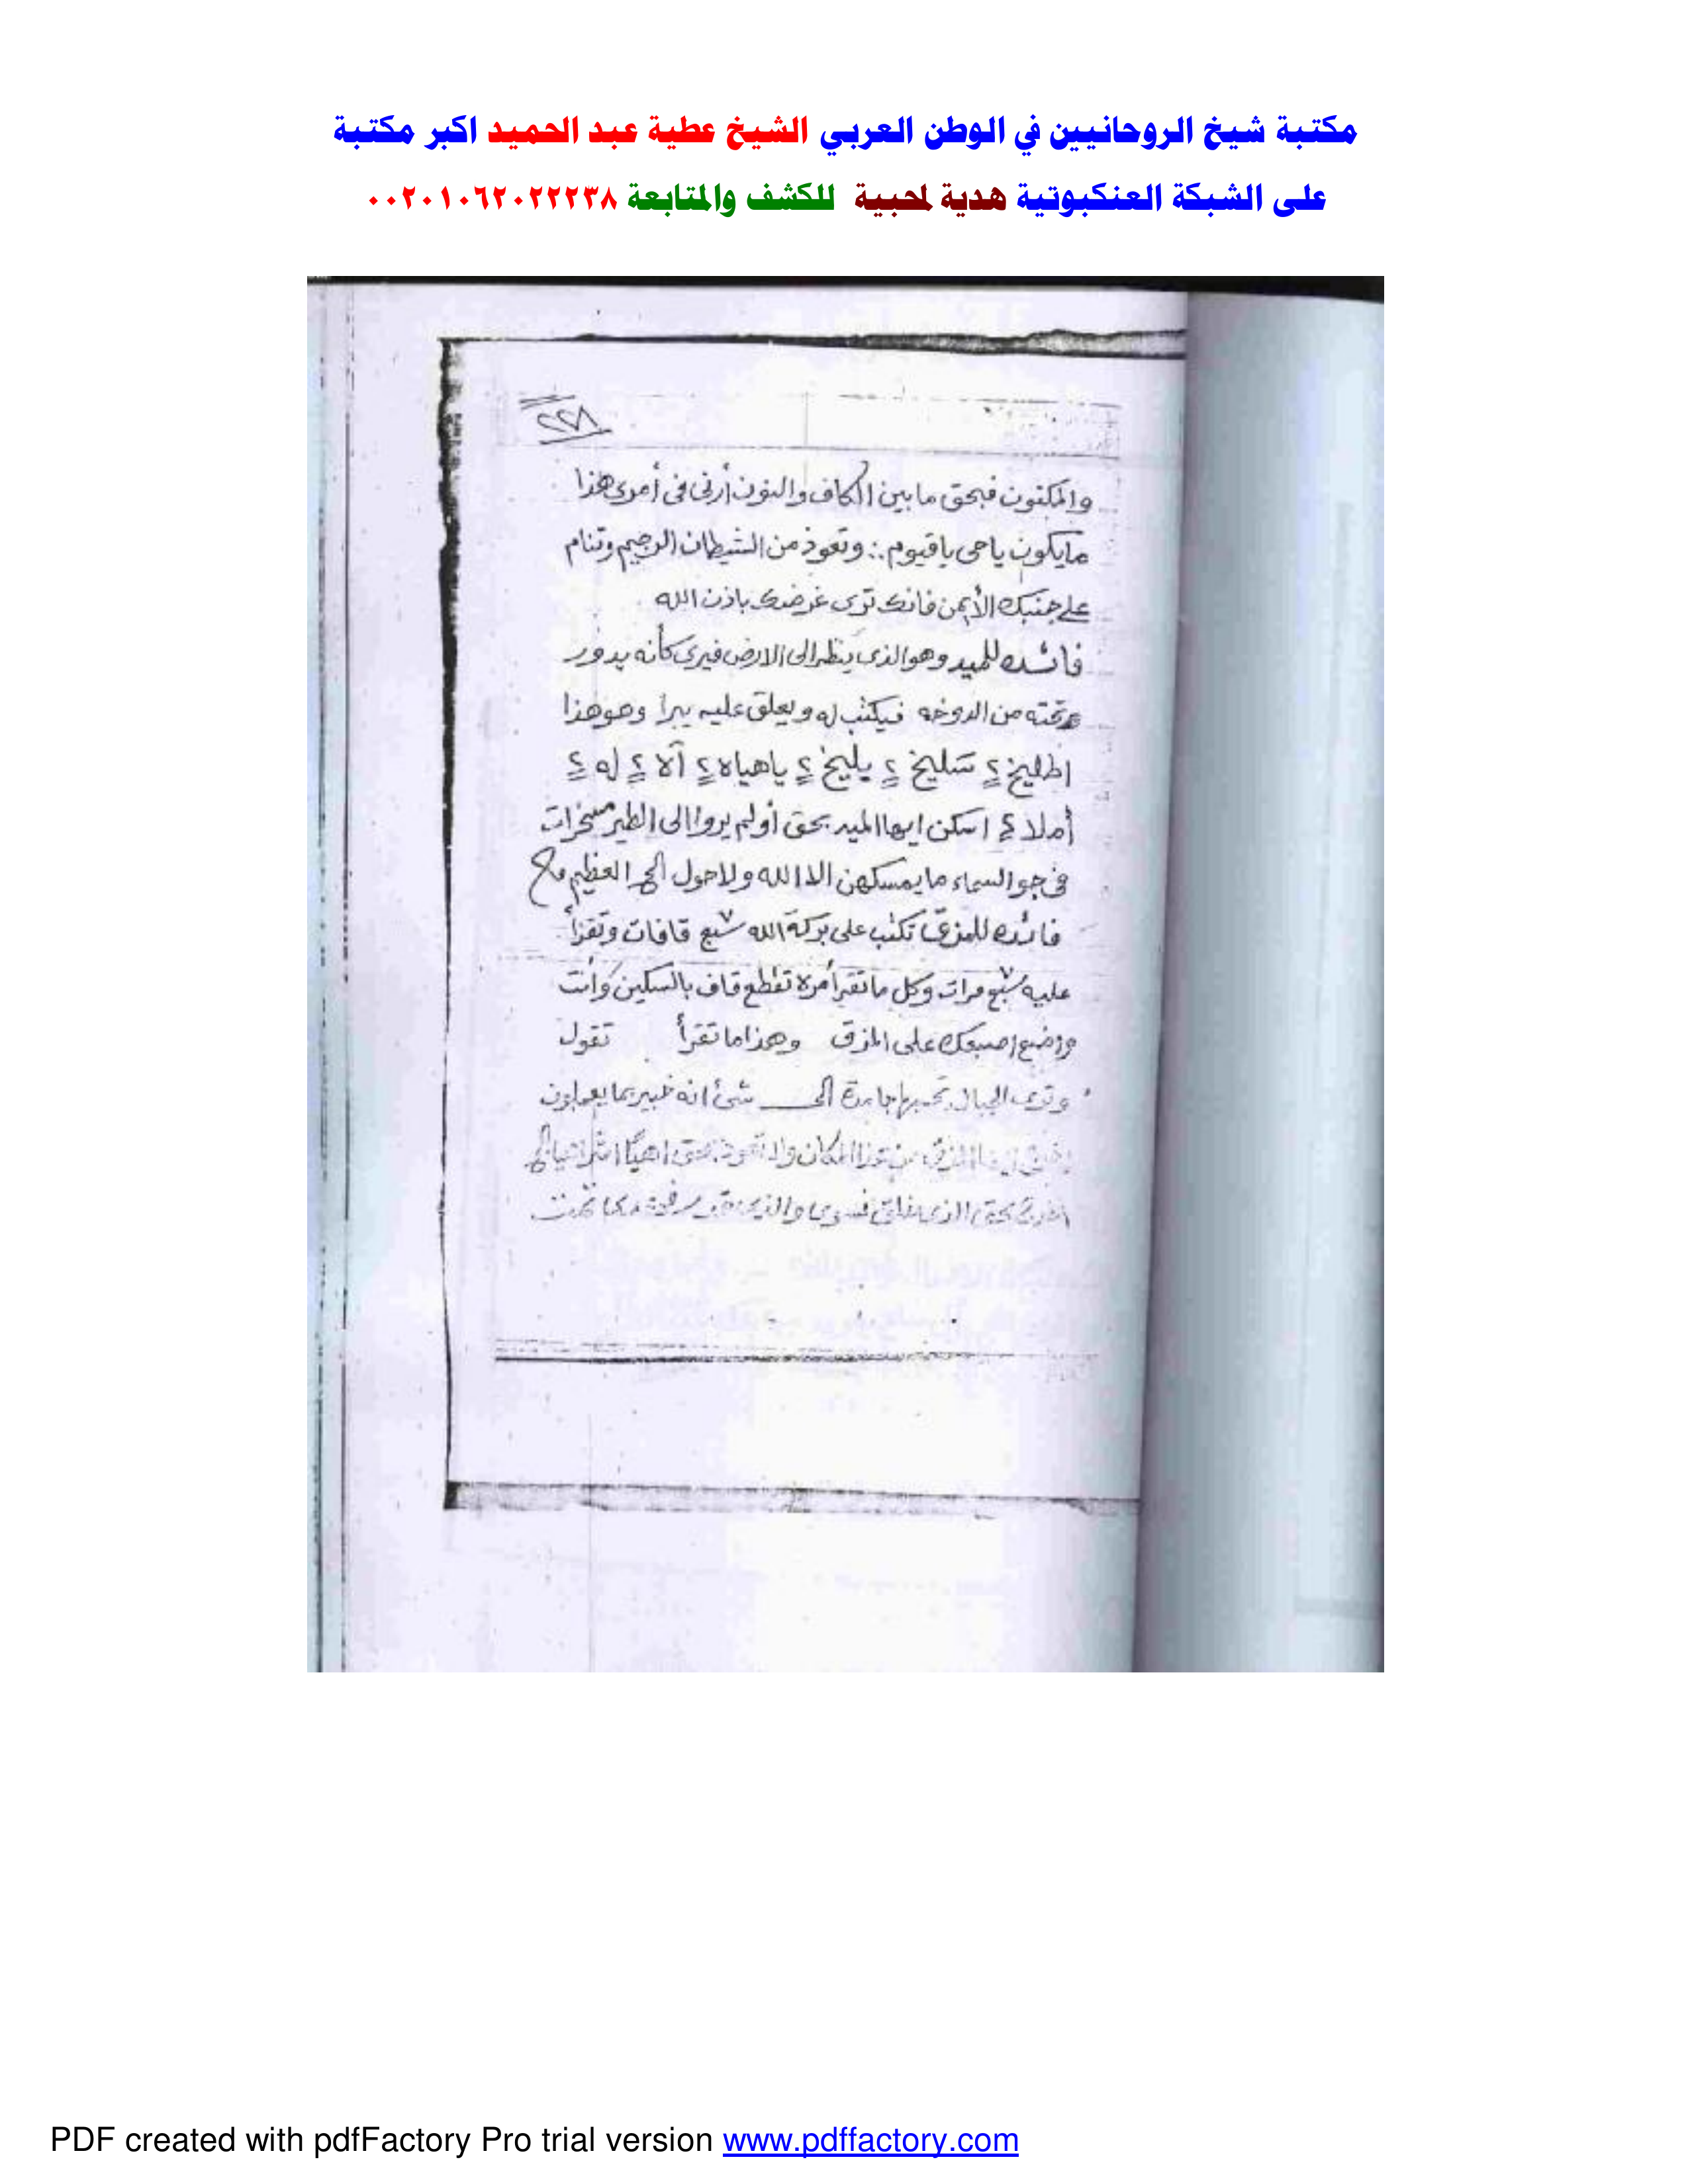 مكتبة شيخ الروحانيين في الوطن العربي الشيخ عطية عبد الحميد اكبر مكتبة
على الشبكة العنكبوتية هدية لمحبية للكشف والمتابعة ٠٠٢٠١٠٦٢٠٢٢٢٣٨
٢٢٨
والمكنون فبحق ما بين الكاف والنون أرنى فى أمرى هذا
ما يكون ياحى ياقيوم ∴ وتعوذ من الشيطان الرجيم وتنام
على جنبك الأيمن فانك ترى غرضك باذن الله
فائده للميد وهو الذى ينظر الى الارض فيرى كأنه يدور
تحته من الدوخه فيكتب له ويعلق عليه يبرا وهو هذا
اطليخ ٢ شليخ ٢ يليخ ٢ ياهياه ٢ آلا ٢ له ٢
أملا ٢ اسكن ايها الميد بحق أولم يروا الى الطير مسخرات
فى جو السماء ما يمسكهن الا الله ولاحول الخ العظيم
فائده للمذق تكتب على بركة الله سبع قافات وتقرأ
عليه سبع مرات وكل ما تقرأ مرة تقطع قاف بالسكين وأنت
وضع اصبعك على المذق وهذا ما تقرأ تقول
وترى الجبال تحسبها جامدة الى شئ انه خبير بما يعملون
المكان ولا تعود بحق اهيا
بحق الذى خلق فسوى والذى
PDF created with pdfFactory Pro trial version www.pdffactory.com